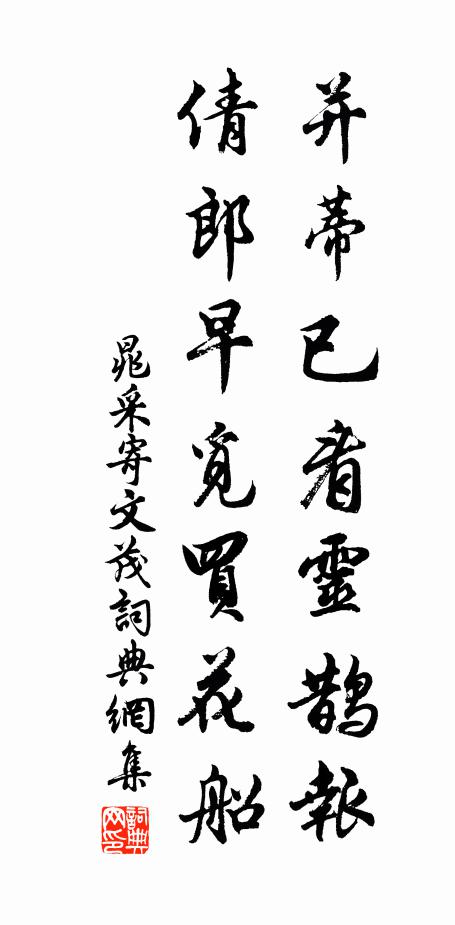 并蒂已看靈鵲報
倩郎早覓買花船
晁采寄文茂詞典網集
詞典网印